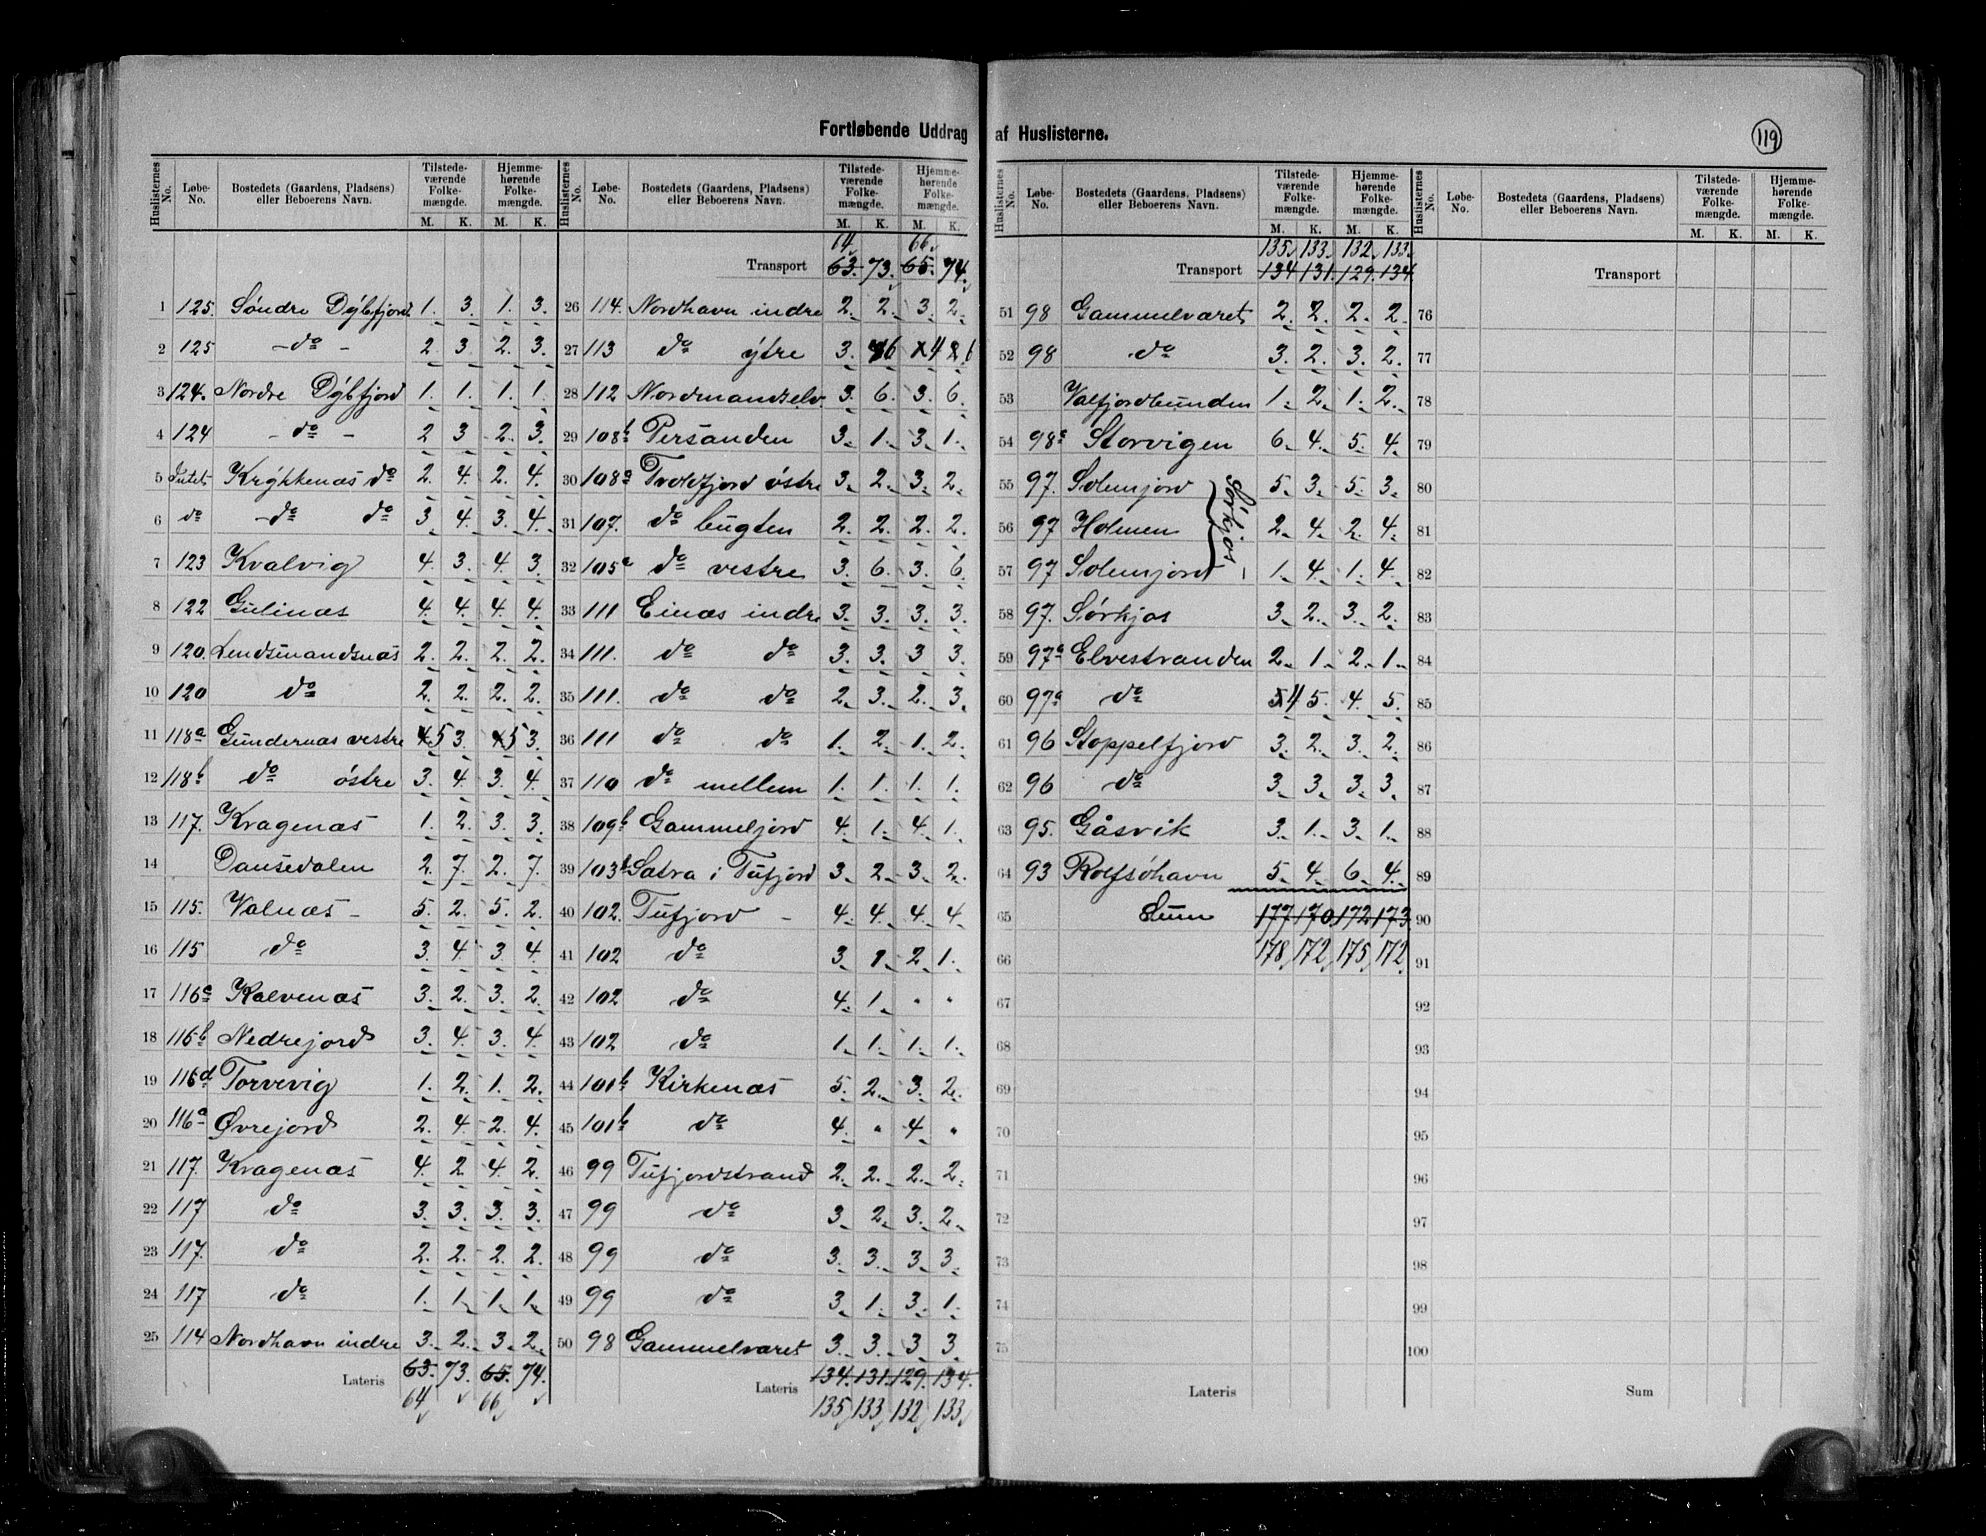 Fortløbende Uddrag af Huslisterne.
119
Huslisternes No. | Løbe-No. | Bostedets (Gaardens, Pladsens) eller Beboerens Navn. | Tilstedeværende Folkemængde. M. K. | Hjemmehørende Folkemængde. M. K.
1 125. Søndre Dybfjord 1. 3. 1. 3.
2 125 - do - 2. 3. 2. 3.
3 124. Nordre Dybfjord 1. 1. 1. 1.
4 124 - do - 2 3 2. 3.
5 Krykkenæs do 2. 4. 2. 4.
6 do - do do 3. 4. 3. 4.
7 123 Kvalvig 4. 3. 4. 3.
8 122 Gulinæs 4. 4. 4. 4.
9 120. Lendsmandsnæs 2. 2. 2. 2.
10 120 do 2. 2. 2. 2.
11 118a Gundernæs vestre 4 5 3. 4 5 3.
12 118b do østre 3. 4. 3. 4.
13 117. Kragenæs 1. 2. 3. 3.
14 Dansedalen 2. 7. 2. 7.
15 115. Valnæs - 5. 2. 5. 2.
16 115 do 3. 4. 3. 4.
17 116c Kalvenæs 3. 2. 3. 2.
18 116b Nedrejord 3. 4. 3. 4.
19 116d Torvevig 1. 2. 1. 2.
20 116a Øvrejord 2. 4. 2. 4.
21 117. Kragenæs 4. 2 4. 2.
22 117 do 3. 3. 3. 3.
23 117. do 2. 2. 2. 2.
24 117 do 1. 1. 1. 1.
25 114 Nordhavn indre 3. 2. 3. 2.
Lateris 63. 73. 65. 74.
64 66
Huslisternes No. | Løbe-No. | Bostedets (Gaardens, Pladsens) eller Beboerens Navn. | Tilstedeværende Folkemængde. M. K. | Hjemmehørende Folkemængde. M. K.
64 66
Transport 63. 73. 65. 74.
26 114. Nordhavn indre 2. 2. 3. 2.
27 113 do ytre 3. 6 4 6
28 112 Nordmandselv. 3. 6. 3. 6.
29 108b Persanden 3. 1. 3. 1.
30 108a Troldfjord østre 3. 2. 3. 2.
31 107. do bugten 2. 2. 2. 2.
32 105a do vestre 3. 6. 3. 6.
33 111 Einæs indre 3. 3. 3. 3.
34 111. do do 3. 3. 3 3.
35 111. do do 2. 3. 2. 3.
36 111 do do 1. 2. 1. 2.
37 110 do mellem 1. 1. 1. 1.
38 109b Gammeljord 4. 1. 4. 1.
39 103b Satra i Tufjord 3. 2. 3. 2.
40 102. Tufjord - 4. 4. 4. 4.
41 102 do 3. 1. 2. 1.
42 102 do 4. 1. " "
43 102 do 1. 1. 1. 1.
44 101b Kirkenæs 5. 2. 3. 2.
45 101b do 4. " 4. "
46 99 Tufjordstrand 2. 2. 2. 2.
47 99 do 3. 2. 3. 2.
48 99 do 3. 3. 3. 3.
49 99 do 3. 1. 3. 1.
50 98 Gammelværet 3. 3. 3. 3.
Lateris 134. 131. 129. 134.
135 133 132 133
Huslisternes No. | Løbe-No. | Bostedets (Gaardens, Pladsens) eller Beboerens Navn. | Tilstedeværende Folkemængde. M. K. | Hjemmehørende Folkemængde. M. K.
135 133 132 133
Transport 134 131. 129. 134
51 98 Gammelværet 2. 2. 2. 2.
52 98 do 3. 2. 3. 2.
53 Valfjordbunden 1. 2. 1. 2.
54 98a Storvigen 6. 4. 5. 4.
55 97. Solemjord 5. 3. 5. 3.
Sørkjos
56 97 Holmen 2. 4. 2. 4.
57 97 Solemjord 1. 4. 1. 4.
58 97. Sørkjos 3. 2. 3. 2.
59 97a Elvestranden 2. 1. 2. 1.
60 97a do 5 4 5. 4. 5.
61 96 Stoppelfjord 3. 2. 3. 2.
62 96 do 3. 3. 3. 3.
63 95. Gåsvik 3. 1. 3. 1.
64 93 Rolfsøhavn 5. 4. 6. 4.
65 Sum 177 170. 172 173
66 178 172 175 172
67
68
69
70
71
72
73
74
75
Lateris
Huslisternes No. | Løbe-No. | Bostedets (Gaardens, Pladsens) eller Beboerens Navn. | Tilstedeværende Folkemængde. M. K. | Hjemmehørende Folkemængde. M. K.
Transport
76
77
78
79
80
81
82
83
84
85
86
87
88
89
90
91
92
93
94
95
96
97
98
99
100
Sum